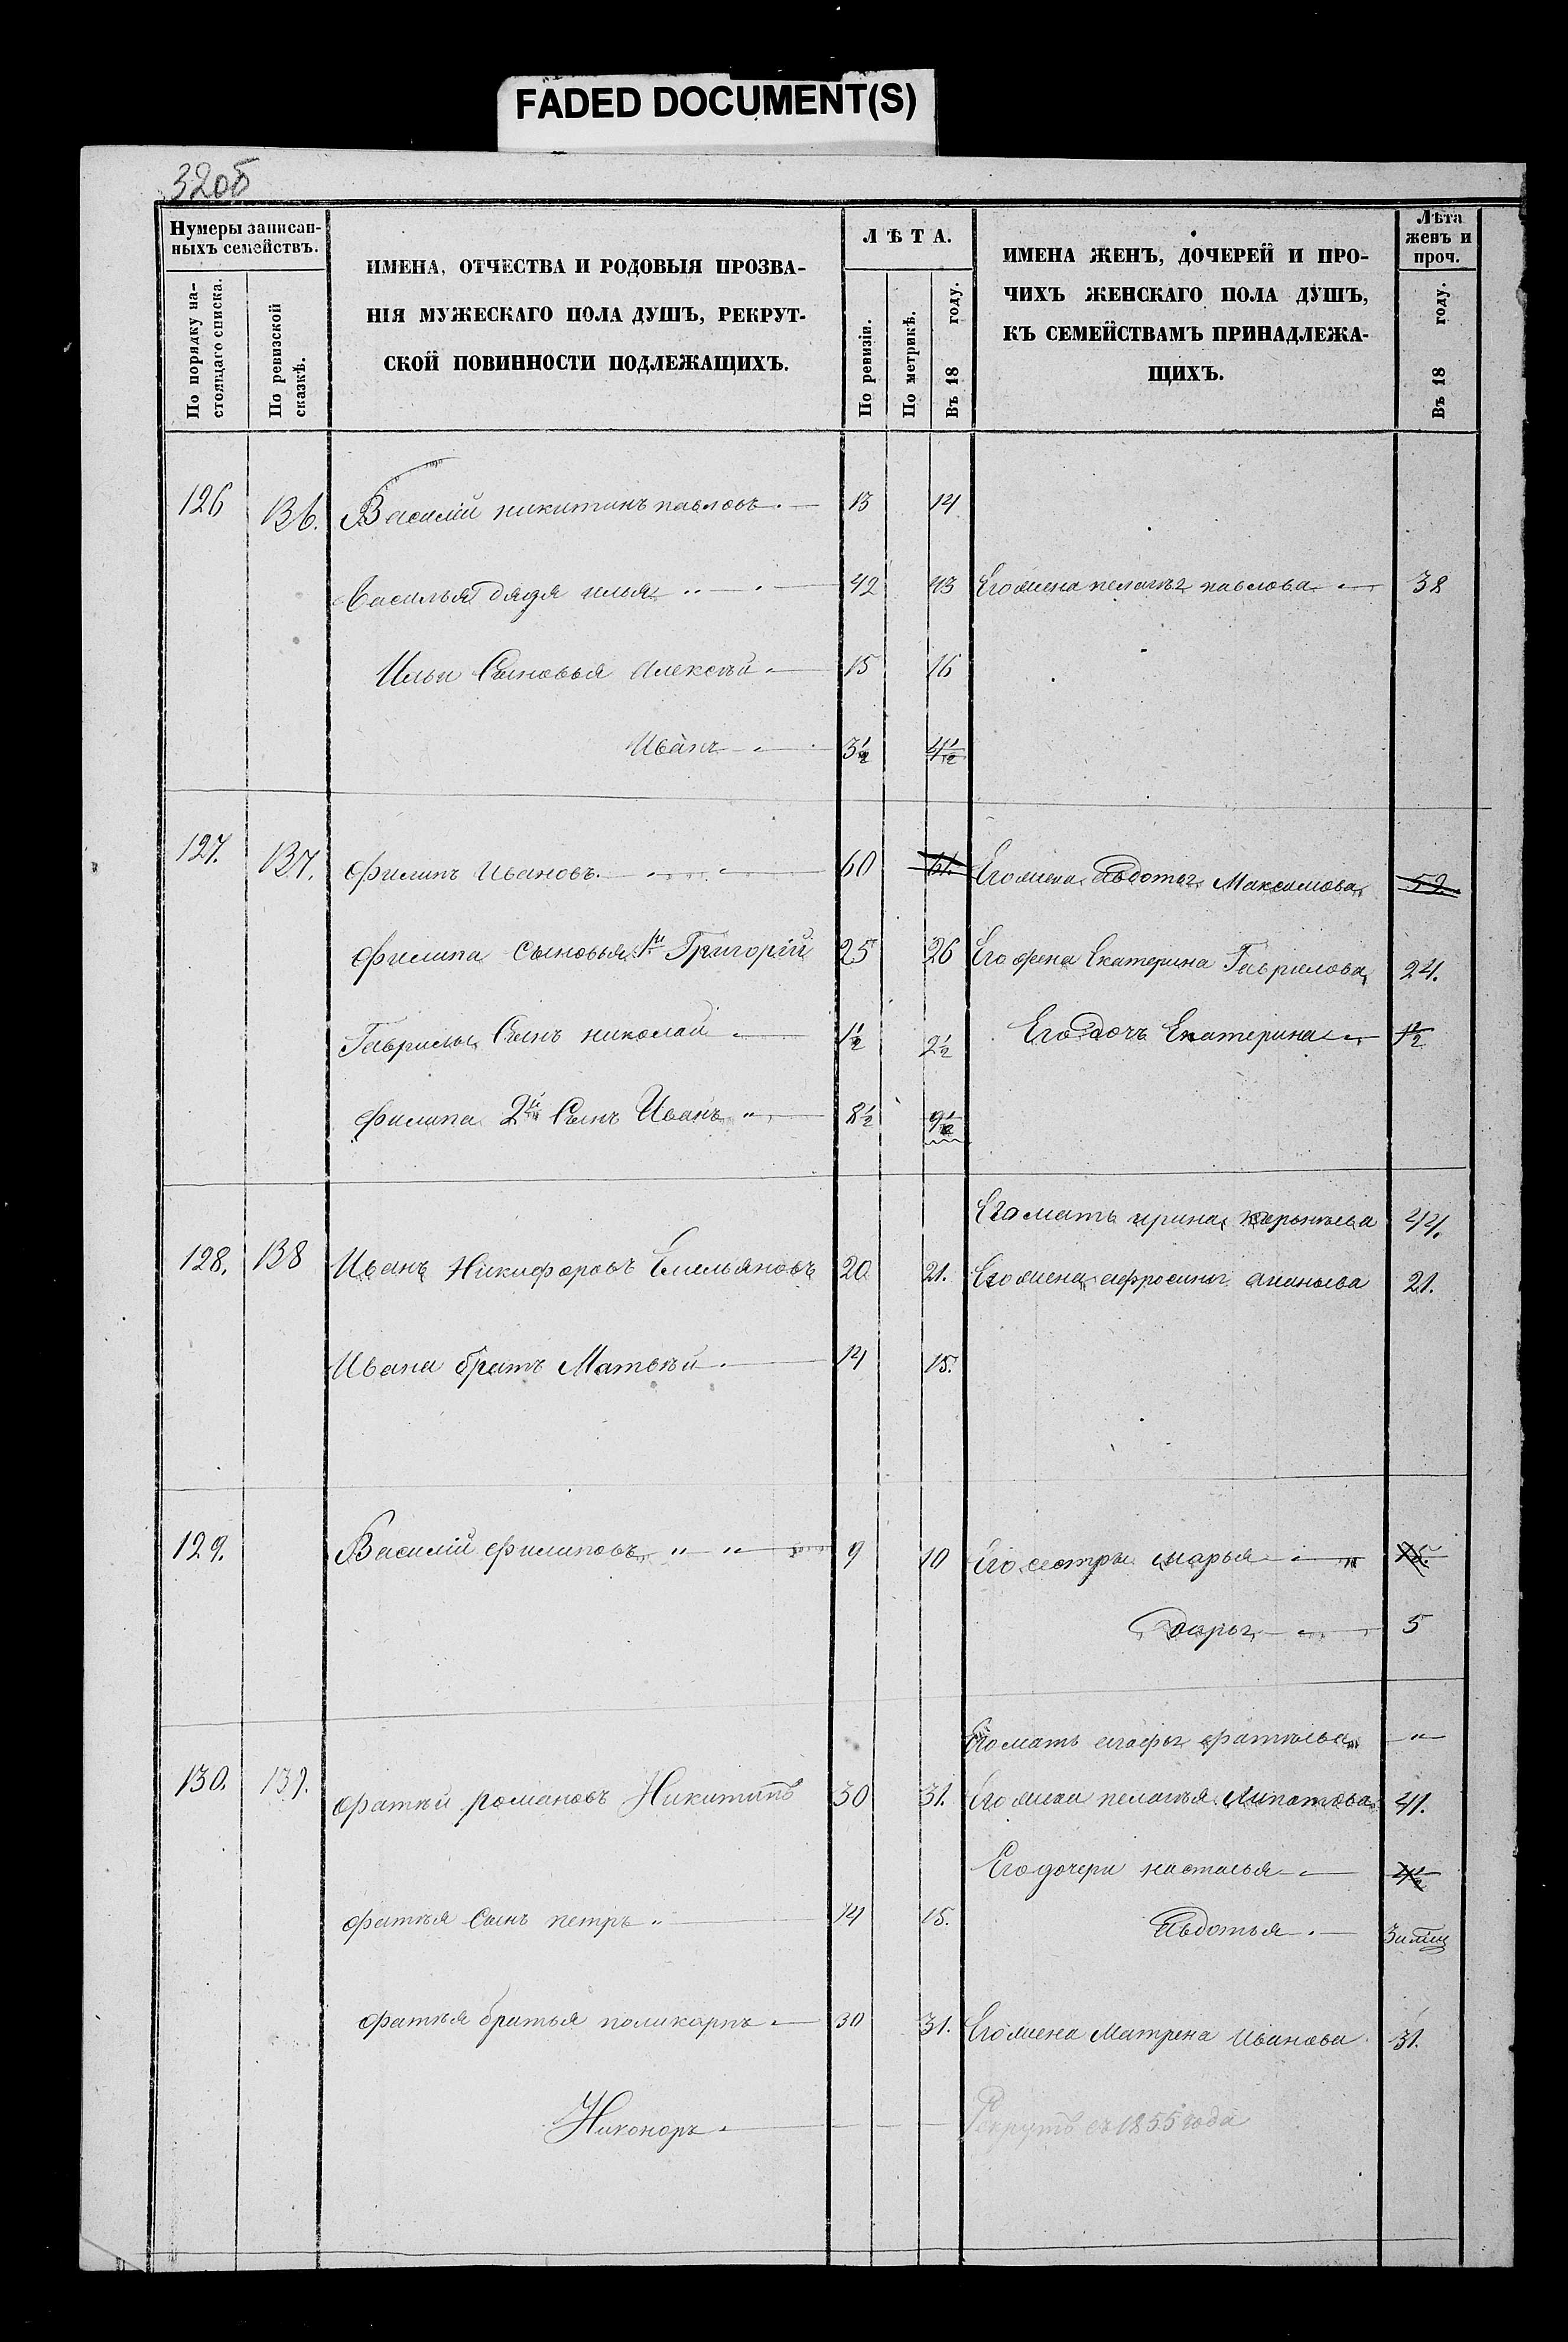 FADED DOCUMENT(S)
32об
Нумеры записан-
ныхъ семействъ.
По порядку на-
стоящаго списка.
По ревизской
сказкѣ.
ИМЕНА, ОТЧЕСТВА И РОДОВЫЯ ПРОЗВА-
НІЯ МУЖЕСКАГО ПОЛА ДУШЪ, РЕКРУТ-
СКОЙ ПОВИННОСТИ ПОДЛЕЖАЩИХЪ.
ЛѢТА.
По ревизіи.
По метрикѣ.
Въ 18 году.
ИМЕНА ЖЕНЪ, ДОЧЕРЕЙ И ПРО-
ЧИХЪ ЖЕНСКАГО ПОЛА ДУШЪ,
КЪ СЕМЕЙСТВАМЪ ПРИНАДЛЕЖА-
ЩИХЪ.
Лѣта
женъ и
проч.
Въ 18 году.
126 136. Василій никитинъ павловъ 13 14
Василья дядя илья 42 43 Его жена пелагѣя павлова 38
Ильи Сыновья Алексѣй 15 16
Иванъ 3½ 4½
127. 137. Филипъ Ивановъ 60 61. Его жена Авдотья Максимова 59.
Филипа сыновья 1й Григорій 25 26 Его жена Екатерина Гаврилова 24.
Гаврилы Сынъ николай 1½ 2½ Его дочь Екатерина ½
Филипа 2й Сынъ Иванъ 8½ 9½
Его мать ирина 44.
128. 138 Иванъ Никифоровъ Емельяновъ 20 21. Его жена афросинья ананьева 21.
Ивана братъ Матвѣй 14 15.
129. Василій Филиповъ 9 10 Его сестры марья
дарья 5
Его мать агафья фатѣева "
130. 139. Фатѣй романовъ Никитинъ 30 31. Его жена пелагѣя Липатова 41.
Его дочери насталья
Фатѣя Сынъ петръ 14 15. Авдотья
Фатѣя братья поликарпъ 30 31. Его жена Матрена Иванова 31.
Никоноръ Рекрутъ съ 1855 года